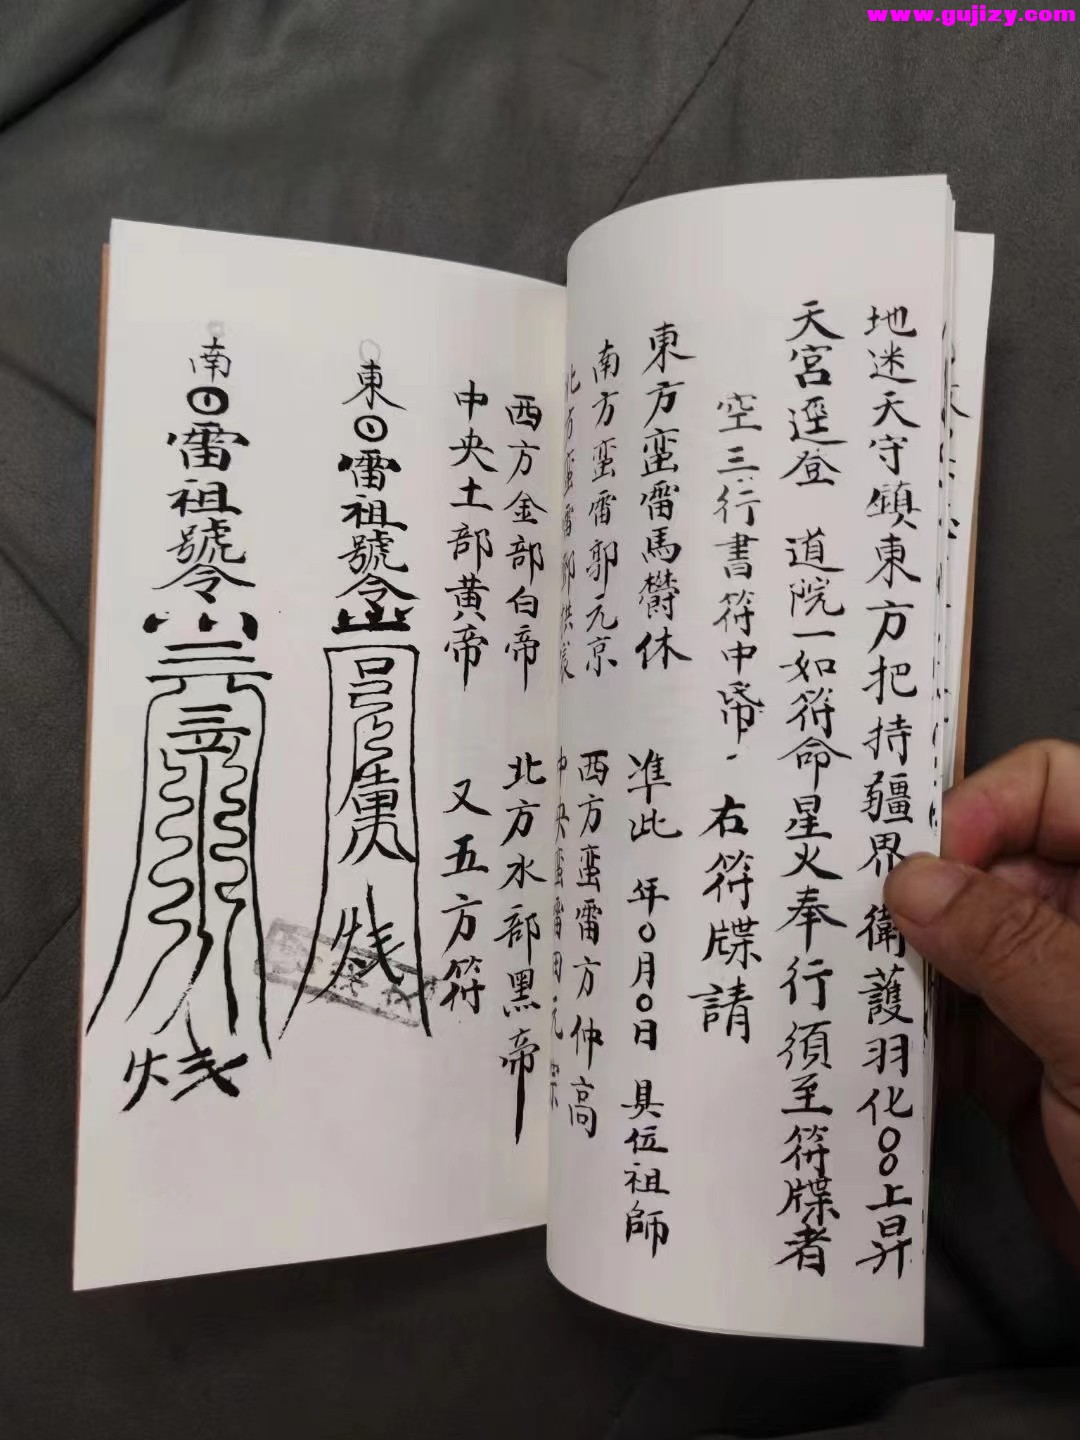 www.gujizy.com
地迷天守鎮東方把持疆界衛護羽化〇〇上昇
天宮逕登 道院一如符命星火奉行須至符牒者
空三行書符中帋 右符牒請
準此 年〇月〇日 具位祖師
東方蛮雷馬欎休
南方蛮雷郭元京 西方蛮雷方仲高
北方蛮雷鄧 中央蛮雷田元宗
西方金部白帝 北方水部黑帝
中央土部黃帝 又五方符
東
雷祖號令
燒
南
雷祖號令
燒